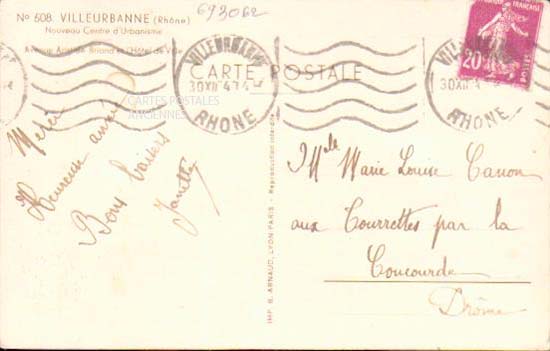 693062
Nº 608. VILLEURBANNE (Rhône)
Nouveau Centre d'Urbanisme
Avenue Aristide Briand et l'Hôtel de Ville
CARTE POSTALE
VILLEURBANNE
30 XII
RHONE
VILLEURBANNE
30 XII
RHONE
20
CARTES POSTALES
ANCIENNES
Merci
Heureuse année
Bons baisers
Janette
IMP. B. ARNAUD, LYON-PARIS - Reproduction interdite
Mlle Marie Louise Canon
aux Tourrettes par la
Coucourde
Drôme